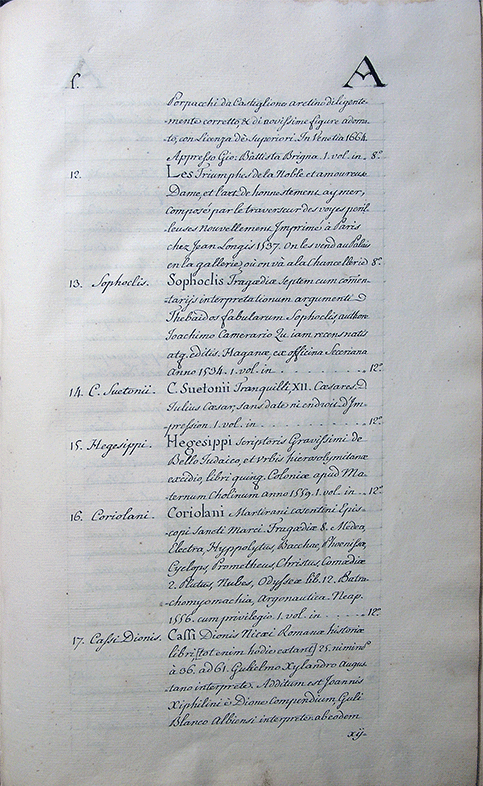 f. A
Porpacchi da Castiglione aretino diligente-
-mente corretto, & di novissime figure adorna-
to, con licenza dè Superiori. In Venetia 1664.
Appresso Gio: Battista Brigna. 1. vol. in 8º
12. Les Triumphes de la Noble et amoureuse
Dame, et l'art de honnestement aymer,
composé par le traverseur des voyes peril-
leuses Nouvellement Imprimé à Paris
chez Jean Longis 1537. On les vend au Palais
en la gallerie, où on và a la Chancellerie 8º
13. Sophoclis. Sophoclis Tragœdiæ Septem cum comen-
tarijs interpretationum argumenti
Thebaidos fabularum Sophoclis, authore
Joachimo Camerario Qu. iam recens natis
atq. editis. Haganæ, ex officina Seceriana
Anno 1534. 1. vol. in 12º
14. C. Suetonii. C. Suetonii Tranquilli, XII. Cæsares.
Julius Cæsar, sans date ni endroit d'Im-
pression 1. vol. in 12º
15. Hegesippi. Hegesippi Scriptoris Gravissimi de
Bello Judaico, et Urbis hierosolymitanæ
excidio, libri quinq. Coloniæ apud Ma-
ternum Cholinum anno 1559. 1. vol. in 12º
16. Coriolani. Coriolani Martirani cosentini Epis-
copi Sancti Marci. Tragœdiæ 8. Medea,
Electra, Hyppolytus, Bacchæ, Phœnissæ,
Cyclops, Prometheus, Christus, Comœdiæ
2. Plutus, Nubes, Odysseæ lib. 12. Batra-
-chomyomachia, Argonautica. Neap.
1556. cum privilegio. 1. vol. in 12º
17. Cassi Dionis. Cassi Dionis Nicæi Romanæ historiæ
libri, [tot enim hodie extant] 25. nimirū
à 36. ad 61. Gulielmo Xylandro Augus-
tano interprete. Additum est Joannis
Xiphilini è Dione compendium, Guli
Blanco Albiensi interprete, ab eodem
xy-